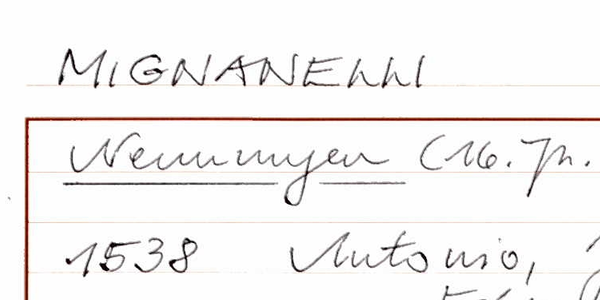 MIGNANELLI
Nennungen (16. Jh.
1538 Antonio,